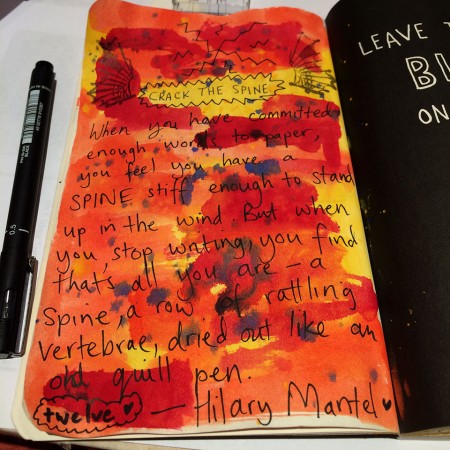 CRACK THE SPINE
When you have committed
enough words to paper,
you feel you have a
SPINE stiff enough to stand
up in the wind. But when
you stop writing, you find
that's all you are — a
Spine, a row of rattling
vertebrae, dried out like an
old quill pen.
twelve ♥ — Hilary Mantel ♥
LEAVE
ON
0.5